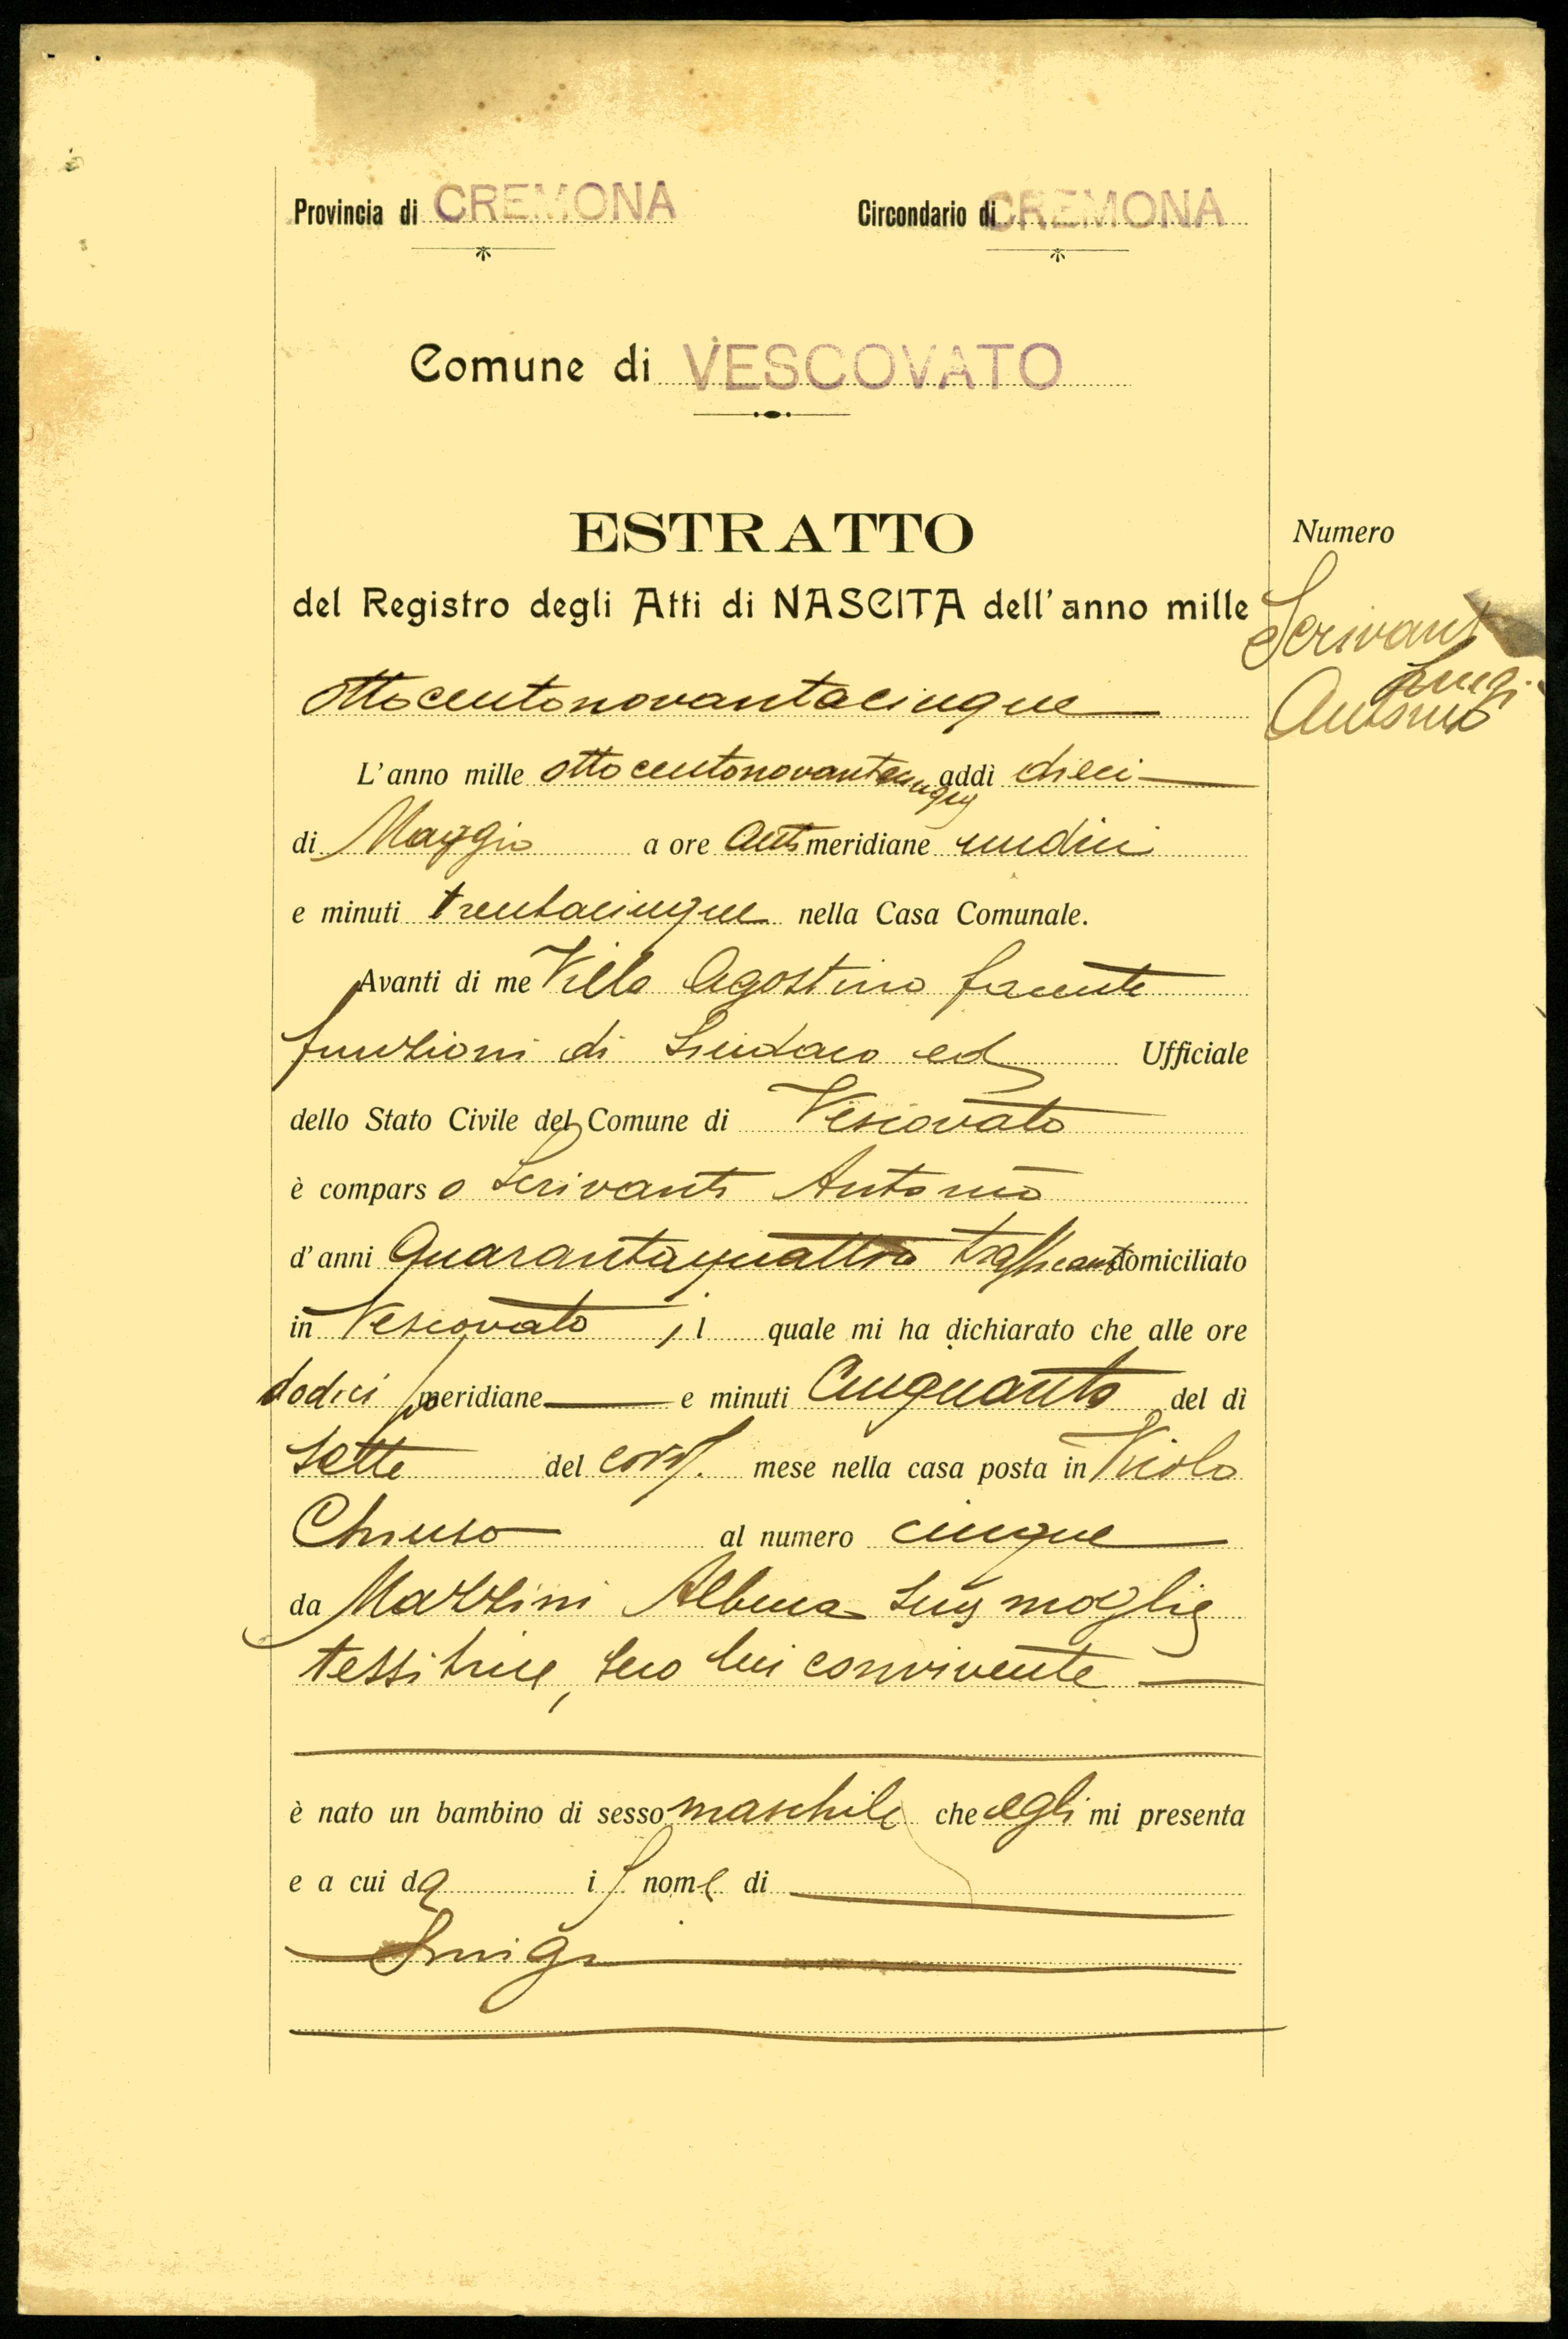 Provincia di CREMONA Circondario di CREMONA
Comune di VESCOVATO
ESTRATTO
Numero
del Registro degli Atti di NASCITA dell'anno mille
Scrivant
Luigi
Antonio
ottocentonovantacinque
L'anno mille ottocentonovantacinque addì dieci
di Maggio a ore antimeridiane undici
e minuti trentacinque nella Casa Comunale.
Avanti di me Villa Agostino facente
funzioni di Sindaco ed Ufficiale
dello Stato Civile del Comune di Vescovato
è comparso Scrivanti Antonio
d'anni quarantaquattro trafficante domiciliato
in Vescovato, il quale mi ha dichiarato che alle ore
dodici meridiane e minuti cinquanta del dì
sette del corr. mese nella casa posta in Vicolo
Chiuso al numero cinque
da Mazzini Albina sua moglie
tessitrice, seco lui convivente
è nato un bambino di sesso maschile che egli mi presenta
e a cui da il nome di
Luigi